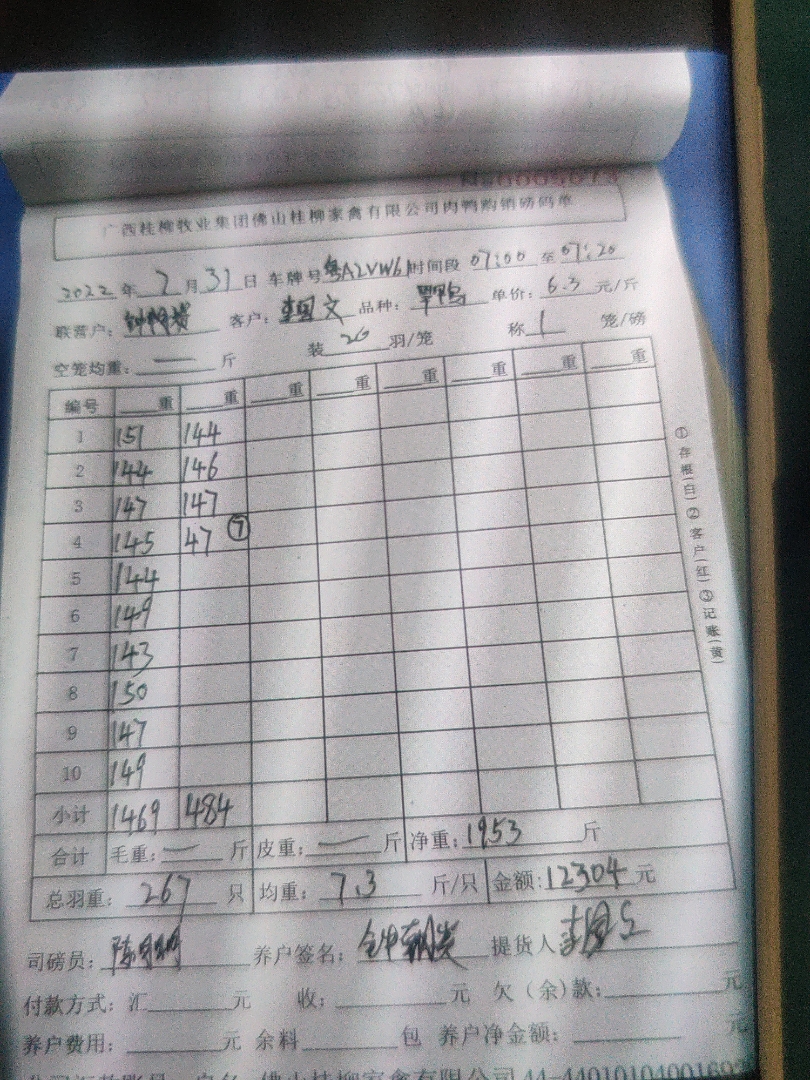 №0005673
广西桂柳牧业集团佛山桂柳家禽有限公司肉鸭购销磅码单
2022年7月31日 车牌号粤A2VW61时间段 07:00至07:20
联营户: 客户:李国文 品种: 单价:6.3元/斤
空笼均重:一斤 装20羽/笼 称1笼/磅
编号 重 重 重 重 重 重 重 重
1 151 144
2 144 146
3 147 147
4 145 47 ⑦
5 144
6 149
7 143
8 150
9 147
10 149
小计 1469 484
合计 毛重:一斤 皮重:一斤 净重:1953斤
总羽重:267只 均重:7.3斤/只 金额:12304元
司磅员: 养户签名: 提货人李国文
付款方式:汇 元 收: 元 欠(余)款: 元
养户费用: 元 余料 包 养户净金额: 元
佛山桂柳家禽有限公司44-44010104001693
①存根(白)②客户(红)③记账(黄)